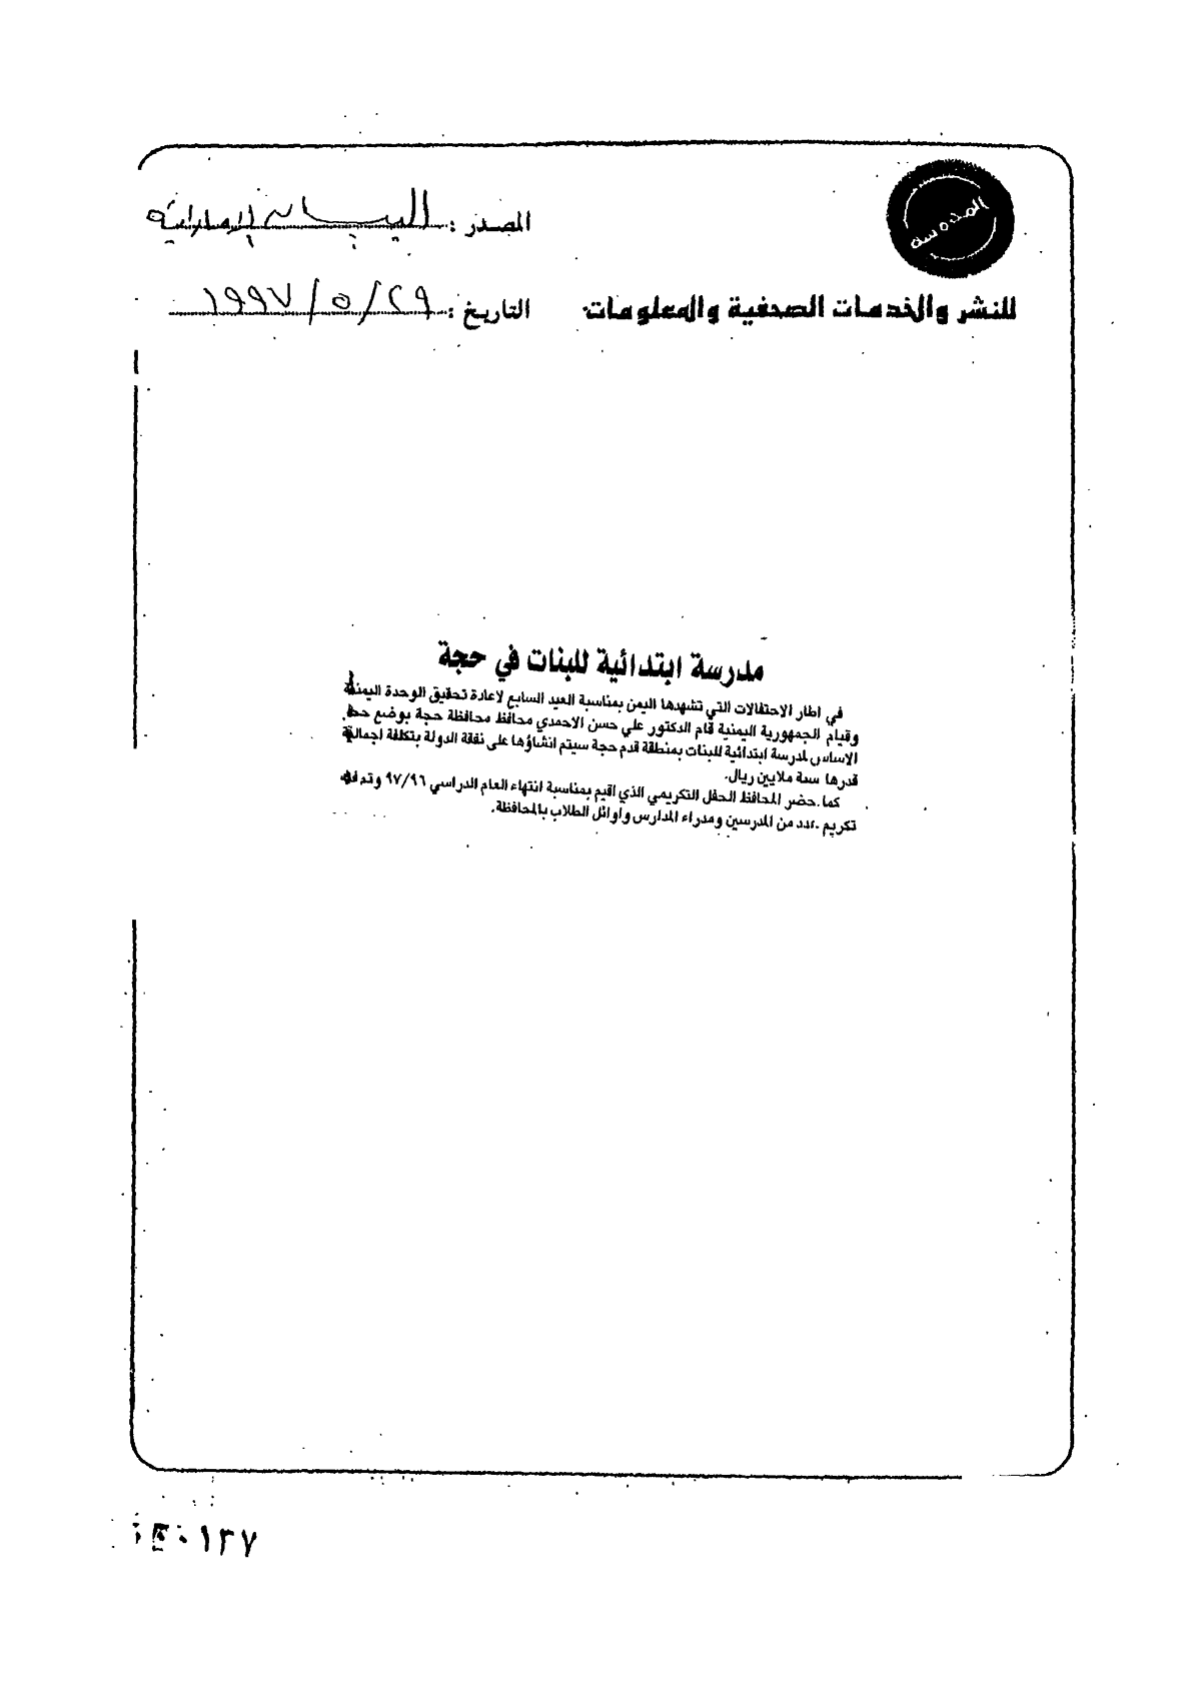 المصدر : البيان الإماراتية
للنشر والخدمات الصحفية والمعلومات
التاريخ : ٢٩/٥/١٩٩٧
مدرسة ابتدائية للبنات في حجة
في اطار الاحتفالات التي تشهدها اليمن بمناسبة العيد السابع لاعادة تحقيق الوحدة اليمنية
وقيام الجمهورية اليمنية قام الدكتور علي حسن الاحمدي محافظ محافظة حجة بوضع حجر
الاساس لمدرسة ابتدائية للبنات بمنطقة قدم حجة سيتم انشاؤها على نفقة الدولة بتكلفة اجمالية
قدرها ستة ملايين ريال.
كما حضر المحافظ الحفل التكريمي الذي اقيم بمناسبة انتهاء العام الدراسي ٩٧/٩٦ وتم
تكريم عدد من المدرسين ومدراء المدارس واوائل الطلاب بالمحافظة.